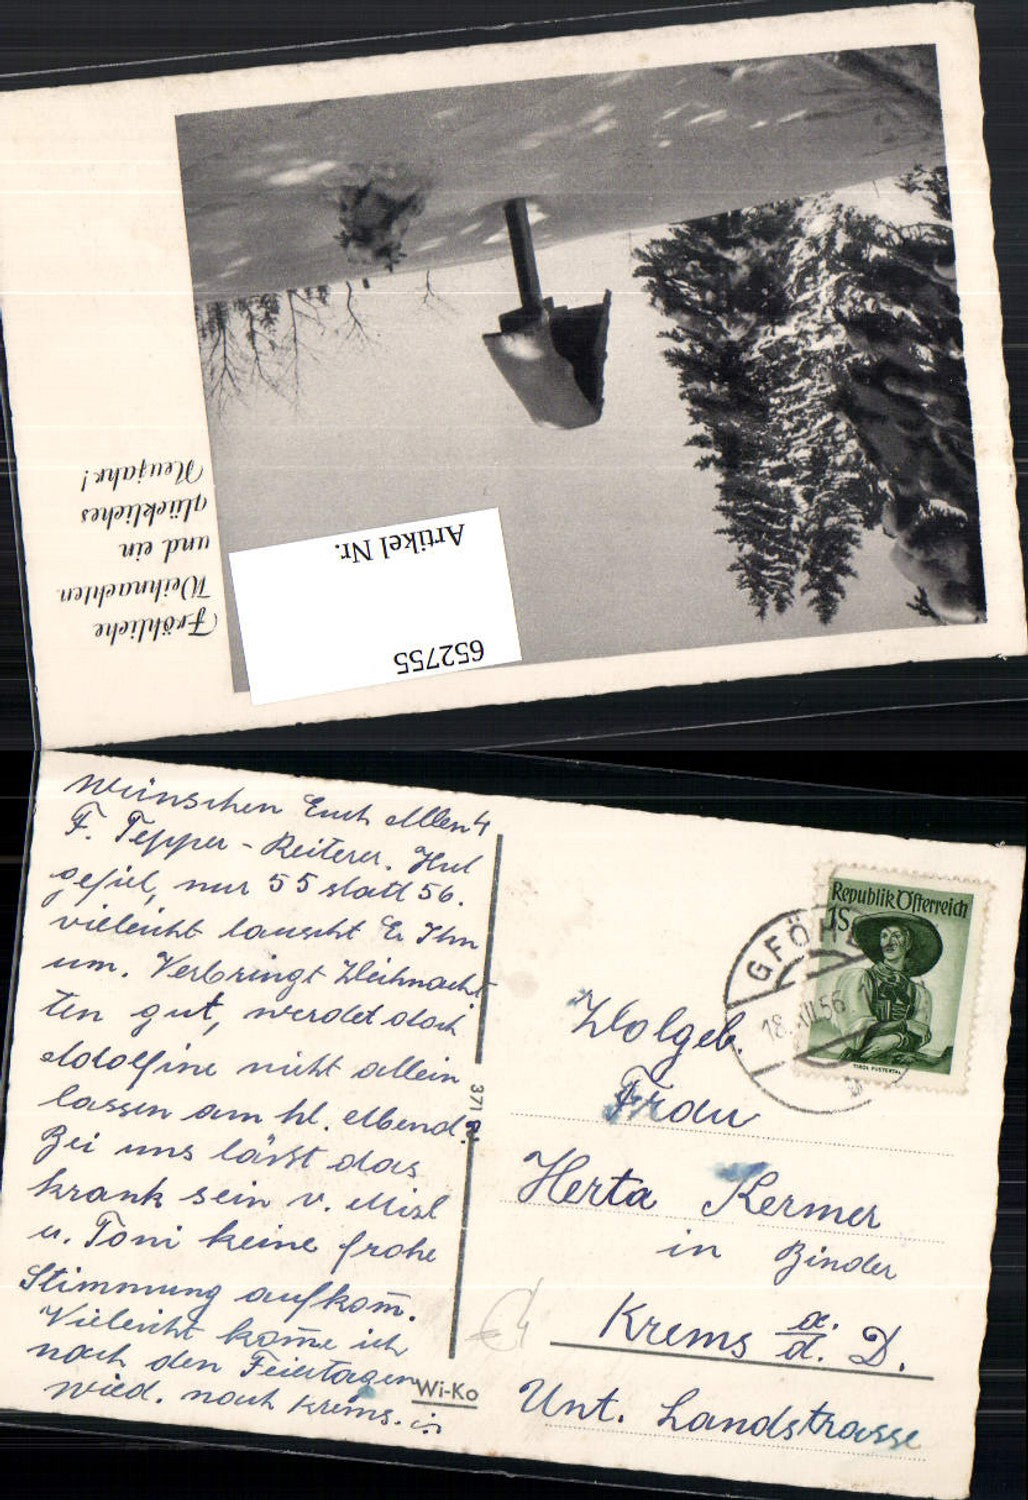 Fröhliche
Weihnachten
und ein
glückliches
Neujahr!
Artikel Nr.
652755
Wünschen Euch Allen 4
F. Tepper - Reiterer. Hut
gefiel, nur 55 statt 56.
vieleicht tauscht Er Ihn
um. Verbringt Weihnach
ten gut, werdet doch
Adolfine nicht allein
lassen am hl. Abend?
Bei uns lässt das
krank sein v. Mizl
u. Toni keine frohe
Stimmung aufkom̄.
Vieleicht kom̄e ich
nach den Feiertagen
wied. nach Krems.
371
Wi-Ko
Republik Österreich
1S
TIROL PUSTERTAL
GFÖHL
18. XII. 56
Wolgeb.
Frau
Herta Kermer
in Binder
Krems a. d. D.
Unt. Landstrasse